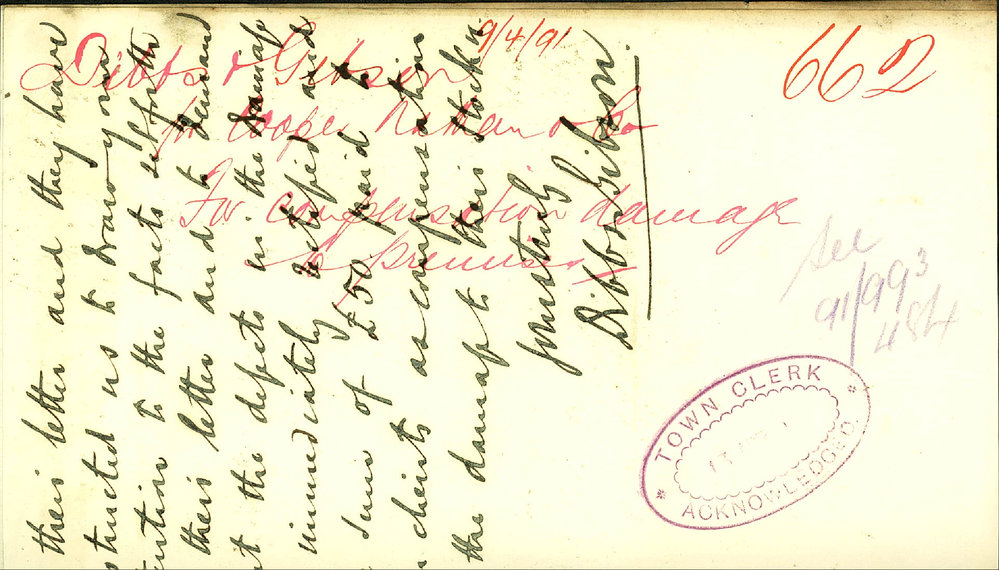 Dibbs & Gibson 9/4/91
for Cooper Nathan & Co
For compensation damage
to premises
662
See
91/993
484
TOWN CLERK
ACKNOWLEDGED
their letter and they have
structed us to draw your
ention to the facts set forth
their letter and to demand
t the defects in the
immediately rectified and
sum of £50 paid to
clients as compensation
the damage to their stock
yours truly
Dibbs & Gibson.